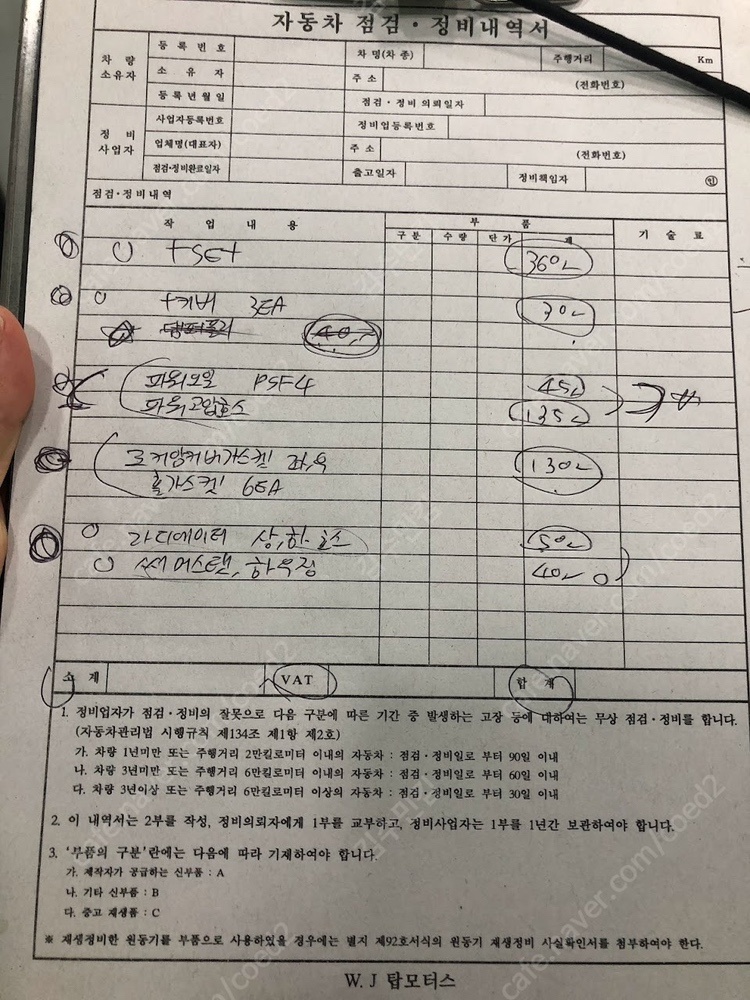 자동차 점검·정비내역서
차 량 소유자
등 록 번 호
차 명(차 종)
주행거리
Km
소 유 자
주 소
(전화번호)
등 록 년 월 일
점검·정비 의뢰일자
정 비 사업자
사업자등록번호
정비업등록번호
업체명(대표자)
주 소
(전화번호)
점검·정비완료일자
출고일자
정비책임자
인
점검·정비내역
작 업 내 용
부 품
기 술 료
구분 수량 단가 계
+SET 360
+커버 3EA 30
40
파워오일 PSF4 45
파워고압호스 135
로커암커버가스켓 좌,우 130
홀가스켓 6EA
라디에이터 상,하 호스 50
써머스탯, 하우징 40
소 계 VAT 합 계
1. 정비업자가 점검·정비의 잘못으로 다음 구분에 따른 기간 중 발생하는 고장 등에 대하여는 무상 점검·정비를 합니다.
(자동차관리법 시행규칙 제134조 제1항 제2호)
가. 차량 1년미만 또는 주행거리 2만킬로미터 이내의 자동차 : 점검·정비일로 부터 90일 이내
나. 차량 3년미만 또는 주행거리 6만킬로미터 이내의 자동차 : 점검·정비일로 부터 60일 이내
다. 차량 3년이상 또는 주행거리 6만킬로미터 이상의 자동차 : 점검·정비일로 부터 30일 이내
2. 이 내역서는 2부를 작성, 정비의뢰자에게 1부를 교부하고, 정비사업자는 1부를 1년간 보관하여야 합니다.
3. '부품의 구분'란에는 다음에 따라 기재하여야 합니다.
가. 제작자가 공급하는 신부품 : A
나. 기타 신부품 : B
다. 중고 재생품 : C
※ 재생정비한 원동기를 부품으로 사용하있을 경우에는 별지 제92호서식의 원동기 재생정비 사실확인서를 첨부하여야 한다.
W. J 탑모터스
cafe.naver.com/coed2